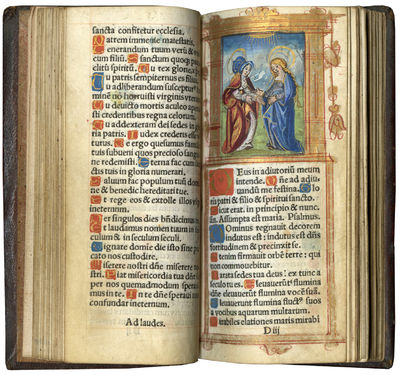 sancta confitetur ecclesia.
Patrem immense maiestatis.
Venerandum tuum verũ & vni
cum filiũ. Sanctum quoq; para
clitũ spiritũ. Tu rex glorie xp̃e.
Tu patris sempiternus es filius.
Tu ad liberandum suscepturꝰ ho
minẽ no horruisti virginis vterum
Tu deuicto mortis aculeo aperui
sti credentibus regna celorum.
Tu ad dexteram dei sedes in glo
ria patris. Iudex crederis esse ven
turus. Te ergo quesumus famulis
tuis subueni quos precioso sangui
ne redemisti. Eterna fac cum san
ctis tuis in gloria numerari.
Saluum fac populum tuũ domi
ne & benedic hereditati tue.
Et rege eos & extolle illos vsq; in
ineternum.
Per singulos dies bñdicimus te.
Et laudamus nomen tuum in se
culum & in seculum seculi.
Dignare domine die isto sine pec
cato nos custodire.
Miserere nostri dñe miserere no
stri. Fiat misericordia tua dñe su
per nos quemadmodum sperauimꝰ
mus in te. In te dñe speraui non
confundar ineternum.
Ad laudes.
Deus in adiutoriũ meum
intende. Dñe ad adiu
uandũ me festina. Glo
ria patri & filio & spiritui sancto.
Sicut erat in principio & nunc.
Añ. Assumpta est maria. Psalmus.
Dominus regnauit decorem
indutus est: indutus est dñs
fortitudinem & precinxit se.
Etenim firmauit orbẽ terre: qui
non commouebitur.
Parata sedes tua deus: ex tunc a
seculo tu es. Eleuauerũt flumina
dñe eleuauerũt flumina vocẽ suã.
Eleuauerunt flumina fluctꝰ suos
a vocibus aquarum multarum.
Mirabiles elationes maris mirabi
D iij